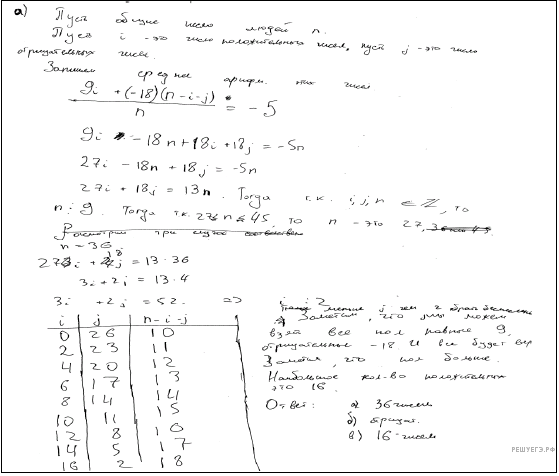 а) Пусть общее число людей n.
Пусть i - это число положительных чисел, пусть j - это число
отрицательных чисел.
Запишем среднее арифм. них чисел
9i + (-18)(n-i-j) / n = -5
9i - 18n + 18i + 18j = -5n
27i - 18n + 18j = -5n
27i + 18j = 13n. Тогда т.к. i, j, n ∈ ℤ, то
n ⋮ 9. Тогда т.к. 27 ≤ n ≤ 45, то n - это 27, 36 или 45.
Рассмотрим три случая
n = 36
27i + 18j = 13·36
3i + 2j = 13·4
3i + 2j = 52. => i ⋮ 2
i j n-i-j
0 26 10
2 23 11
4 20 12
6 17 13
8 14 14
10 11 15
12 8 16
14 5 17
16 2 18
Заметим, что мы можем
взять все пол равные 9,
отрицательные -18. И все будет вер
Заметим, что пол больше.
Наибольшее кол-во положительных
это 16.
Ответ: а) 36 чисел
б) отрицат.
в) 16 чисел
РЕШУЕГЭ.РФ